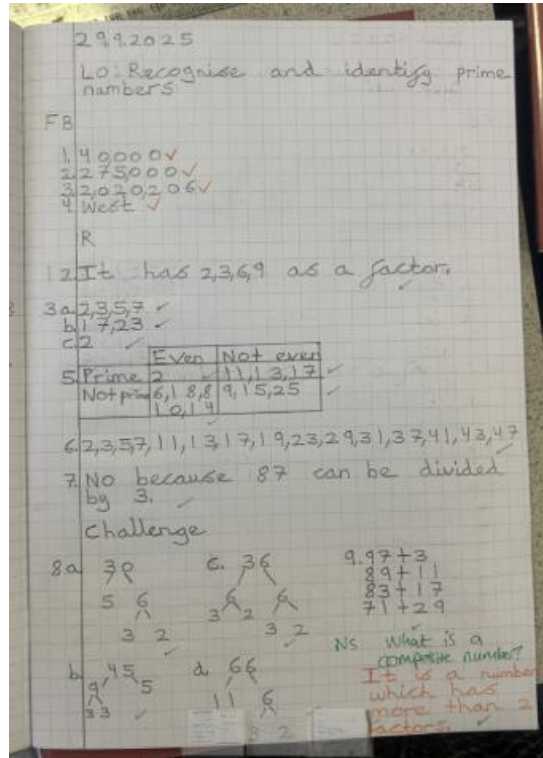 29.9.2025
LO: Recognise and identify prime
numbers
FB
1. 40,000 ✓
2. 275,000 ✓
3. 2,020,206 ✓
4. West ✓
R
12. It has 2,3,6,9 as a factor. ✓
3 a. 2,3,5,7 ✓
b. 17,23 ✓
c. 2 ✓
Even Not even
5. Prime 2 ✓ 11,13,17 ✓
Not prime 6,18,8 9,15,25 ✓
10,14 ✓
6. 2,3,57,11,13,17,19,23,29,31,37,41,43,47 ✓
7. No because 87 can be divided
by 3. ✓
Challenge
8a 30
5 6
3 2 ✓
c. 36
6 6
3 2 3 2 ✓
9. 97+3
89+11
83+17
71+29 ✓
b. 45
9 5
3 3 ✓
d. 66
11 6
3 2
NS What is a
composite number?
It is a number
which has
more than 2
factors. ✓